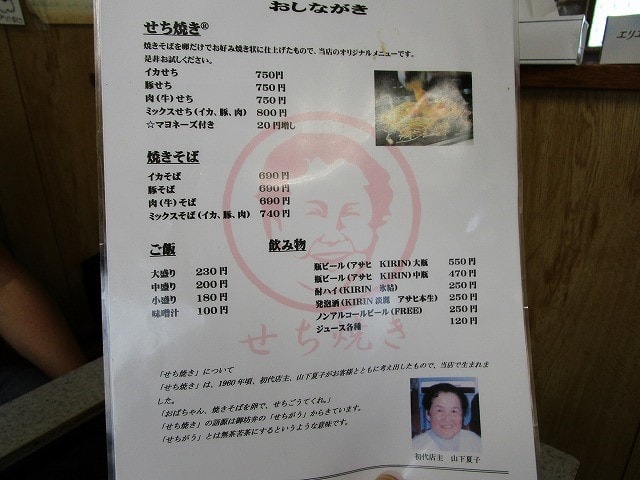 おしながき
せち焼き®
焼きそばを卵だけでお好み焼き状に仕上げたもので、当店のオリジナルメニューです。
是非お試しください。
イカせち 750円
豚せち 750円
肉(牛)せち 750円
ミックスせち(イカ、豚、肉) 800円
☆マヨネーズ付き 20円増し
焼きそば
イカそば 690円
豚そば 690円
肉(牛)そば 690円
ミックスそば(イカ、豚、肉) 740円
ご飯
大盛り 230円
中盛り 200円
小盛り 180円
味噌汁 100円
飲み物
瓶ビール(アサヒ KIRIN)大瓶 550円
瓶ビール(アサヒ KIRIN)中瓶 470円
酎ハイ(KIRIN 氷結) 250円
発泡酒(KIRIN 淡麗 アサヒ本生) 250円
ノンアルコールビール(FREE) 250円
ジュース各種 120円
せち焼き
「せち焼き」について
「せち焼き」は、1960年頃、初代店主、山下夏子がお客様とともに考え出したもので、当店で生まれま
した。
「おばちゃん、焼きそばを卵で、せちごうてくれ。」
「せち焼き」の語源は御坊弁の「せちがう」からきています。
「せちがう」とは無茶苦茶にするというような意味です。
初代店主 山下夏子